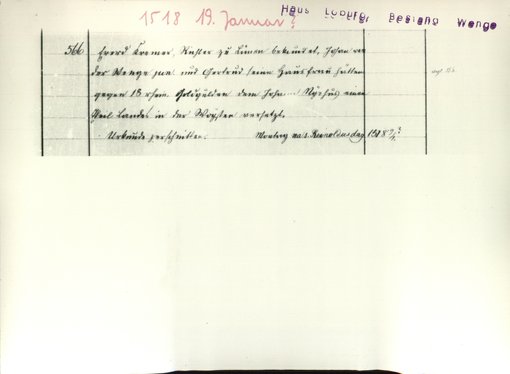 1518 19. Januar?
Haus Loburg, Bestand Wenge
566
Everd Kremer, Richter zu Lünen bekundet, Johan van
der Wenge jun. und Gertrud seine Hausfrau hätten
gegen 18 rhein. Goldgulden dem Joh. einen
Theil Landes in der versetzt.
Urkunde zerschnitten. Montag na s. Ponciani dag 1518